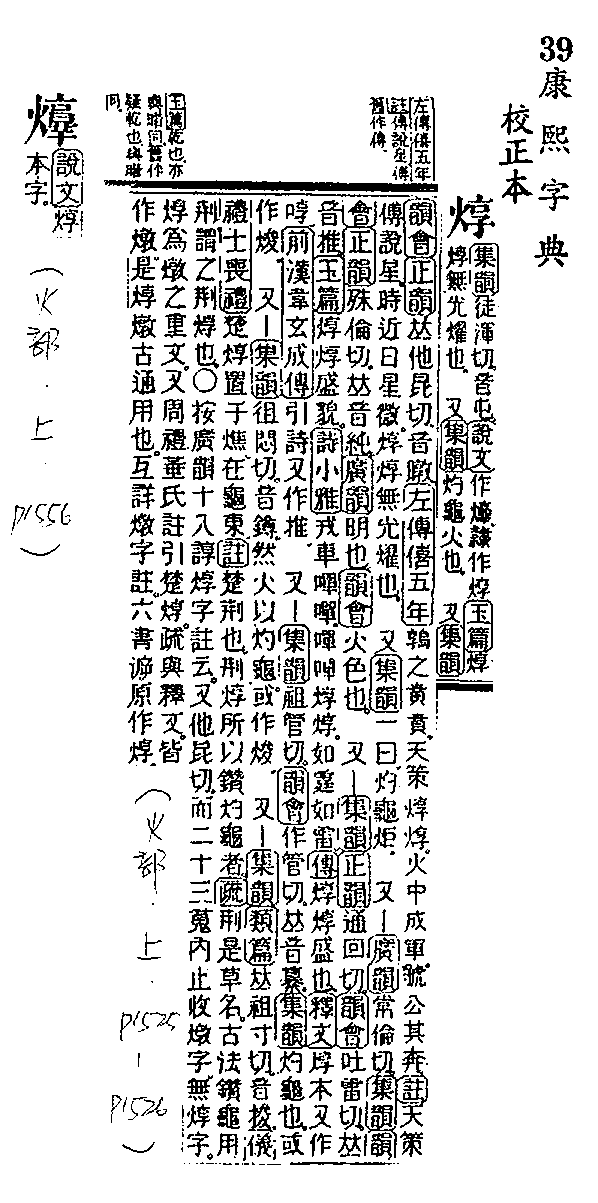 39
康熙字典
校正本
焞
集韻徒渾切音屯說文作𤏙隷作焞玉篇焞
焞無光燿也 又集韻灼龜火也 又集韻
左傳僖五年
註傳說星傅
舊作傳
韻會正韻𠀤他昆切音暾左傳僖五年鶉之賁賁天策焞焞火中成軍虢公其奔註天策
傳說星時近日星微焞焞無光燿也 又集韻一曰灼龜炬 又一廣韻常倫切集韻韻
會正韻殊倫切𠀤音純廣韻明也韻會火色也 又一集韻正韻通回切韻會吐雷切𠀤
音推玉篇焞焞盛貌詩小雅戎車嘽嘽嘽嘽焞焞如霆如雷傳焞焞盛也釋文焞本又作
啍前漢韋玄成傳引詩又作推 又一集韻祖管切韻會作管切𠀤音纂集韻灼龜也或
作焌 又一集韻徂悶切音鐏然火以灼龜或作焌 又一集韻類篇𠀤祖寸切音捘儀
禮士喪禮楚焞置于燋在龜東註楚荆也荆焞所以鑽灼龜者疏荆是草名古法鑽龜用
荆謂之荆焞也○按廣韻十八諄焞字註云又他昆切而二十三䰟內止收燉字無焞字
焞爲燉之重文又周禮菙氏註引楚焞疏與釋文皆
作燉是焞燉古通用也互詳燉字註六書泝原作焞
(火部.上.P1525-P1526)
玉篇乾也亦
同舊作
疑乾也與
同
𤏙
說文焞
本字
(火部.上.P1556)